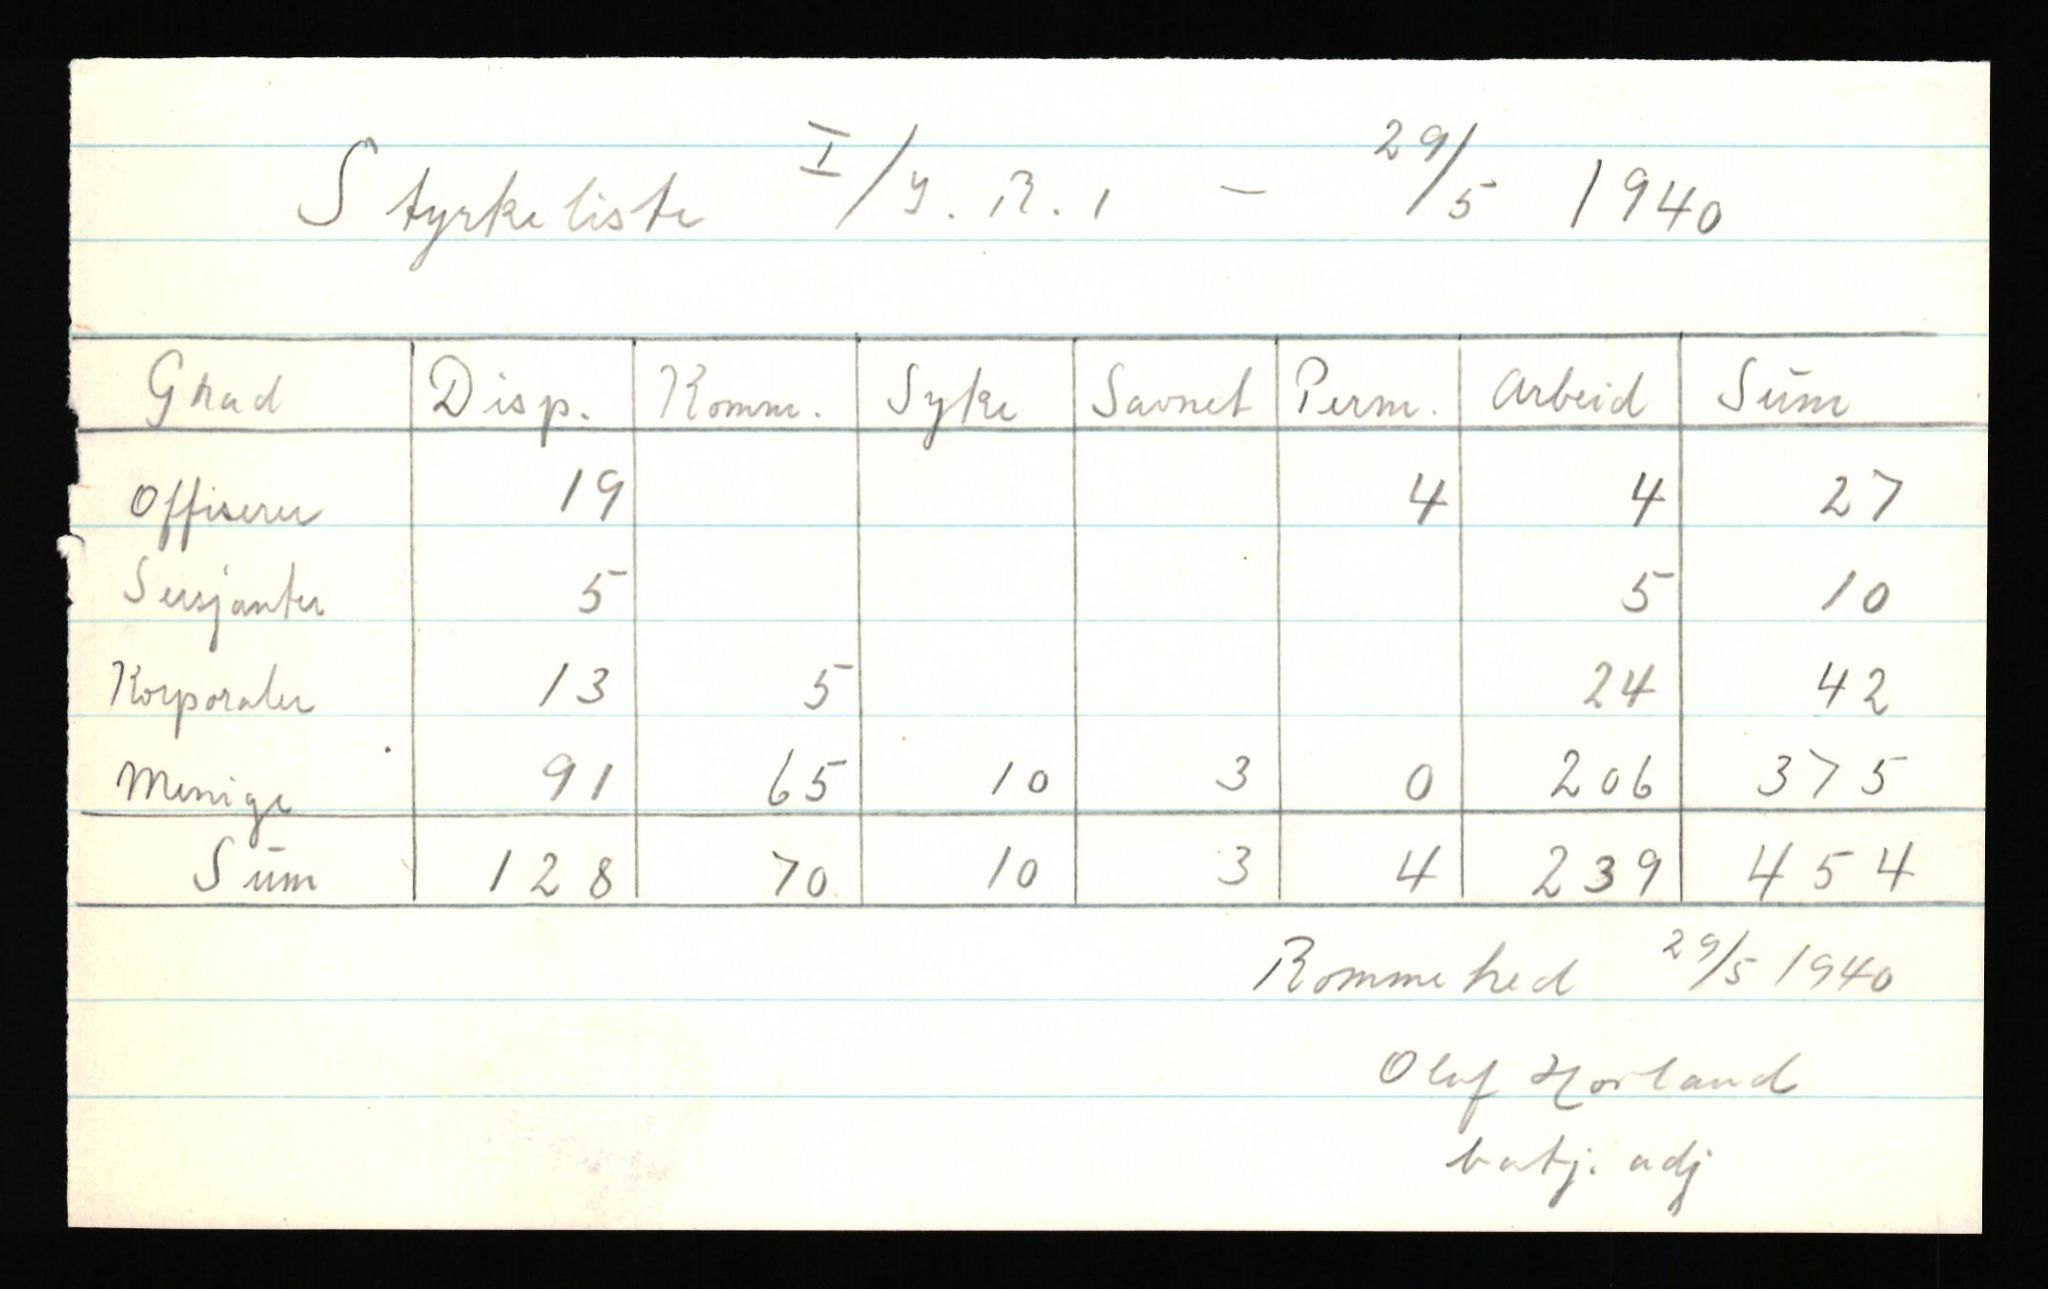 Styrkeliste I/J.R.1 – 29/5 1940
Grad Disp. Komm. Syke Savnet Perm. Arbeid Sum
Offiserer 19 4 4 27
Sersjanter 5 5 10
Korporaler 13 5 24 42
Menige 91 65 10 3 0 206 375
Sum 128 70 10 3 4 239 454
Rommehed 29/5 1940
Olaf
batj. adj